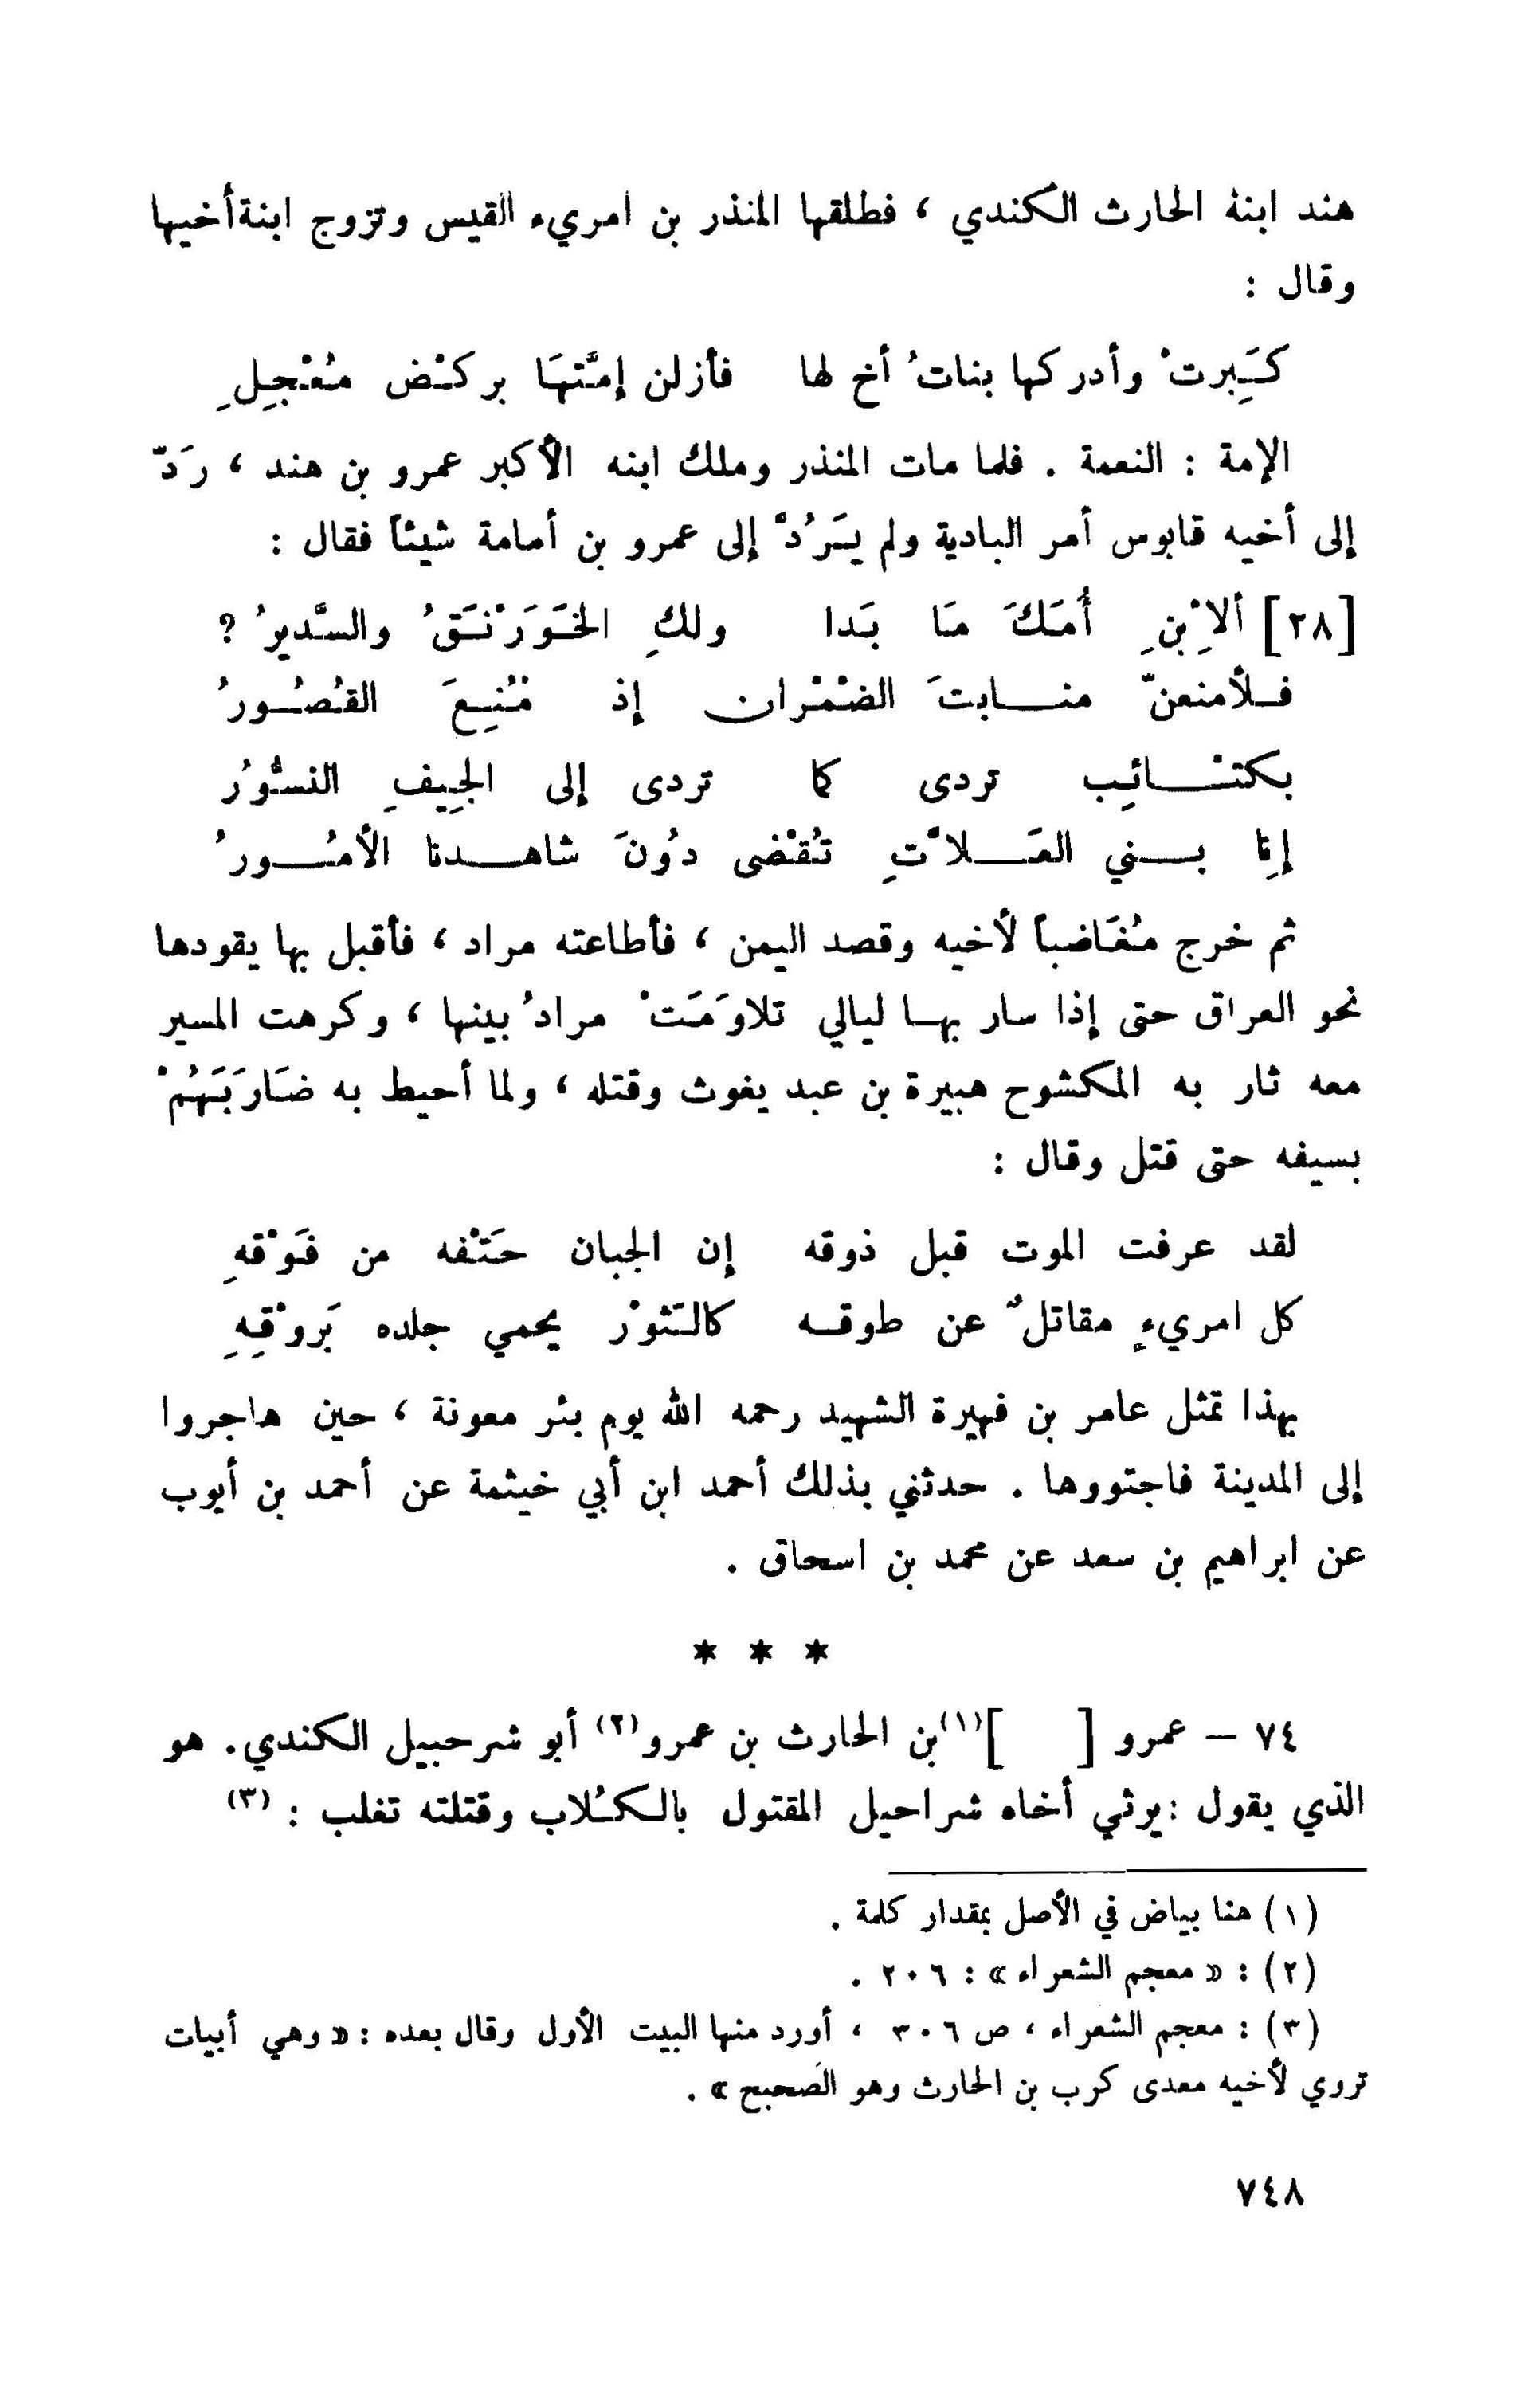 هند ابنة الحارث الكندي ، فطلقها المنذر بن امريء القيس وتزوج ابنة أخيها
وقال :
كَبِرتْ وأدركها بناتُ أخ لها فأزلن إمَّتهَا بركْض مُعْجِلِ
الإمة : النعمة . فلما مات المنذر وملك ابنه الأكبر عمرو بن هند ، رَدّ
إلى أخيه قابوس أمر البادية ولم يَرُدّ إلى عمرو بن أمامة شيئاً فقال :
[٢٨] ألاِبْنِ أُمَكَ مَا بَدا ولكِ الخَوَرْنَقُ والسَّديرُ ؟
فلأمنعنّ منابتَ الضمْران إذ مُنِعَ القُصُورُ
بكتائِب تردى كما تردى إلى الجِيفِ النسُورُ
إنا بني العَلاّتِ تُقْضى دُونَ شاهدنا الأمُورُ
ثم خرج مُغَاضباً لأخيه وقصد اليمن ، فأطاعته مراد ، فأقبل بها يقودها
نحو العراق حتى إذا سار بها ليالي تلاوَمَتْ مرادُ بينها ، وكرهت المسير
معه ثار به المكشوح هبيرة بن عبد يغوث وقتله ، ولما أحيط به ضَارَبَهُمْ
بسيفه حتى قتل وقال :
لقد عرفت الموت قبل ذوقه إن الجبان حَتْفه من فَوْقهِ
كل امريءٍ مقاتلٌ عن طوقه كالثَوْر يحمي جلده بَروْقِهِ
بهذا تمثل عامر بن فهيرة الشهيد رحمه الله يوم بئر معونة ، حين هاجروا
إلى المدينة فاجتووها . حدثني بذلك أحمد ابن أبي خيثمة عن أحمد بن أيوب
عن ابراهيم بن سعد عن محمد بن اسحاق .
* * *
٧٤ – عمرو [ ](١) بن الحارث بن عمرو(٢) أبو شرحبيل الكندي. هو
الذي يقول : يرثي أخاه شراحيل المقتول بالكُلاب وقتلته تغلب : (٣)
(١) هنا بياض في الأصل بمقدار كلمة .
(٢) : « معجم الشعراء » : ٢٠٦ .
(٣) : معجم الشعراء ، ص ٣٠٦ ، أورد منها البيت الأول وقال بعده : « وهي أبيات
تروي لأخيه معدى كرب بن الحارث وهو الصحيح » .
٧٤٨